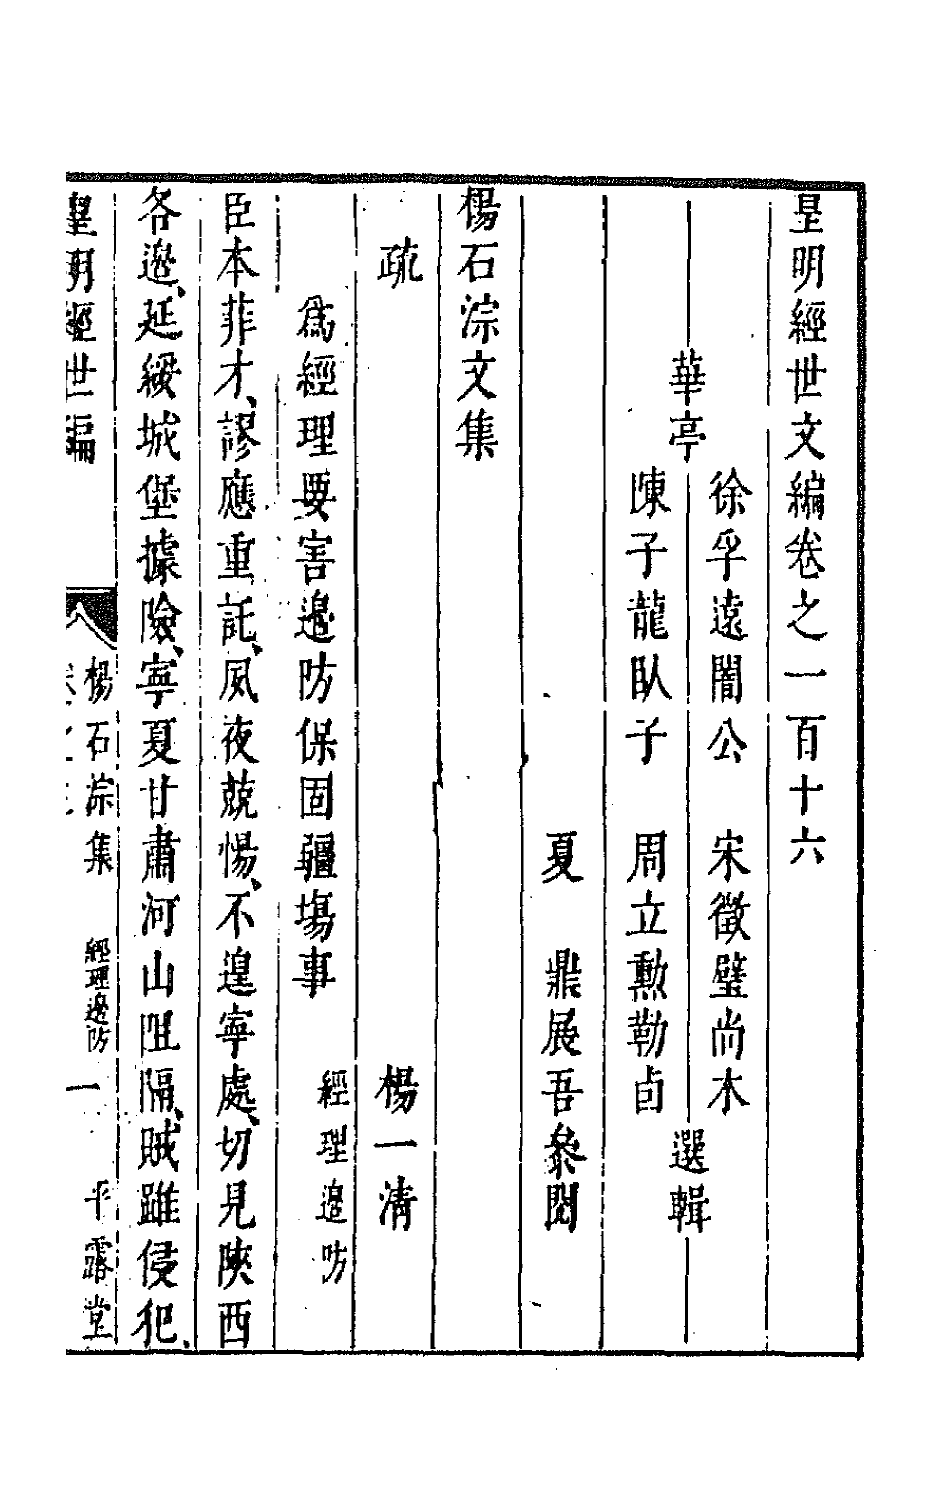 皇明經世文編卷之一百十六
華亭
徐孚遠闇公　宋徵璧尚木
陳子龍臥子　周立勳勒卣
選輯
夏　鼎展吾參閱
楊石淙文集
疏　楊一清
爲經理要害邊防保固疆場事　經理邊防
臣本菲才、謬應重託、夙夜兢惕、不遑寧處、切見陝西
各邊、延綏城堡據險、寧夏甘肅河山阻隔、賊雖侵犯、
皇明經世編
楊石淙集　經理邊防　一　平露堂